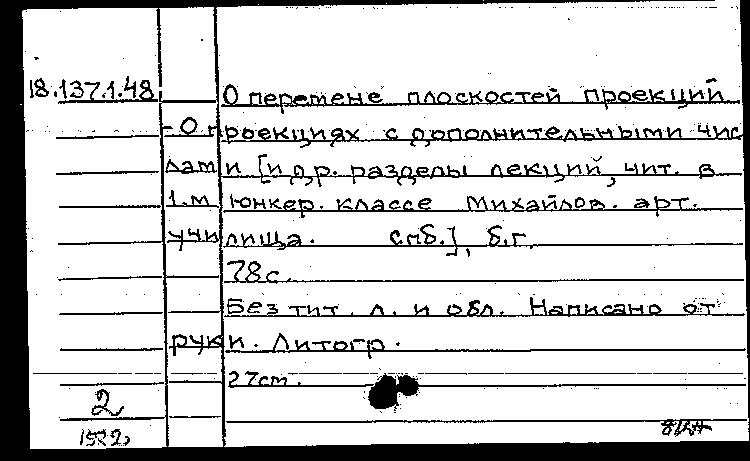 18.137.1.48
О перемене плоскостей проекций
- О проекциях с дополнительными чис
лами [и др. разделы лекций, чит. в
1.м юнкер. классе Михайлов. арт.
училища. Спб.], б.г.
78с.
Без тит. л. и обл. Написано от
руки. Литогр.
27см.
2